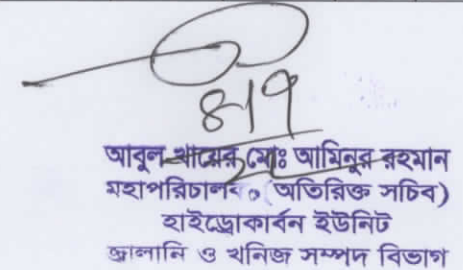 ৪।৭
আবুল খায়ের মোঃ আমিনুর রহমান
মহাপরিচালক (অতিরিক্ত সচিব)
হাইড্রোকার্বন ইউনিট
জ্বালানি ও খনিজ সম্পদ বিভাগ